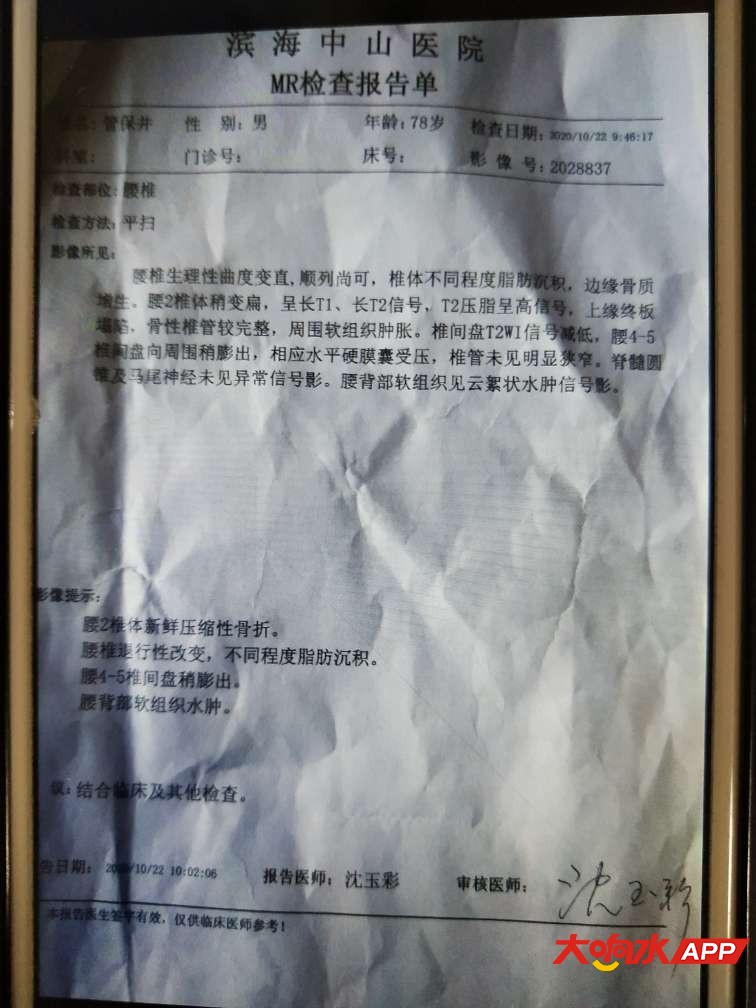 滨海中山医院
MR检查报告单
姓名: 管保井 性 别: 男 年龄: 78岁 检查日期: 2020/10/22 9:46:17
科室: 门诊号: 床号: 影 像 号: 2028837
检查部位: 腰椎
检查方法: 平扫
影像所见:
腰椎生理性曲度变直,顺列尚可，椎体不同程度脂肪沉积，边缘骨质
增生。腰2椎体稍变扁，呈长T1、长T2信号，T2压脂呈高信号，上缘终板
塌陷，骨性椎管较完整，周围软组织肿胀。椎间盘T2WI信号减低，腰4-5
椎间盘向周围稍膨出，相应水平硬膜囊受压，椎管未见明显狭窄。脊髓圆
锥及马尾神经未见异常信号影。腰背部软组织见云絮状水肿信号影。
影像提示:
腰2椎体新鲜压缩性骨折。
腰椎退行性改变，不同程度脂肪沉积。
腰4-5椎间盘稍膨出。
腰背部软组织水肿。
议: 结合临床及其他检查。
告日期: 2020/10/22 10:02:06 报告医师: 沈玉彩 审核医师: 沈玉彩
本报告医生签字有效，仅供临床医师参考!
大响水APP